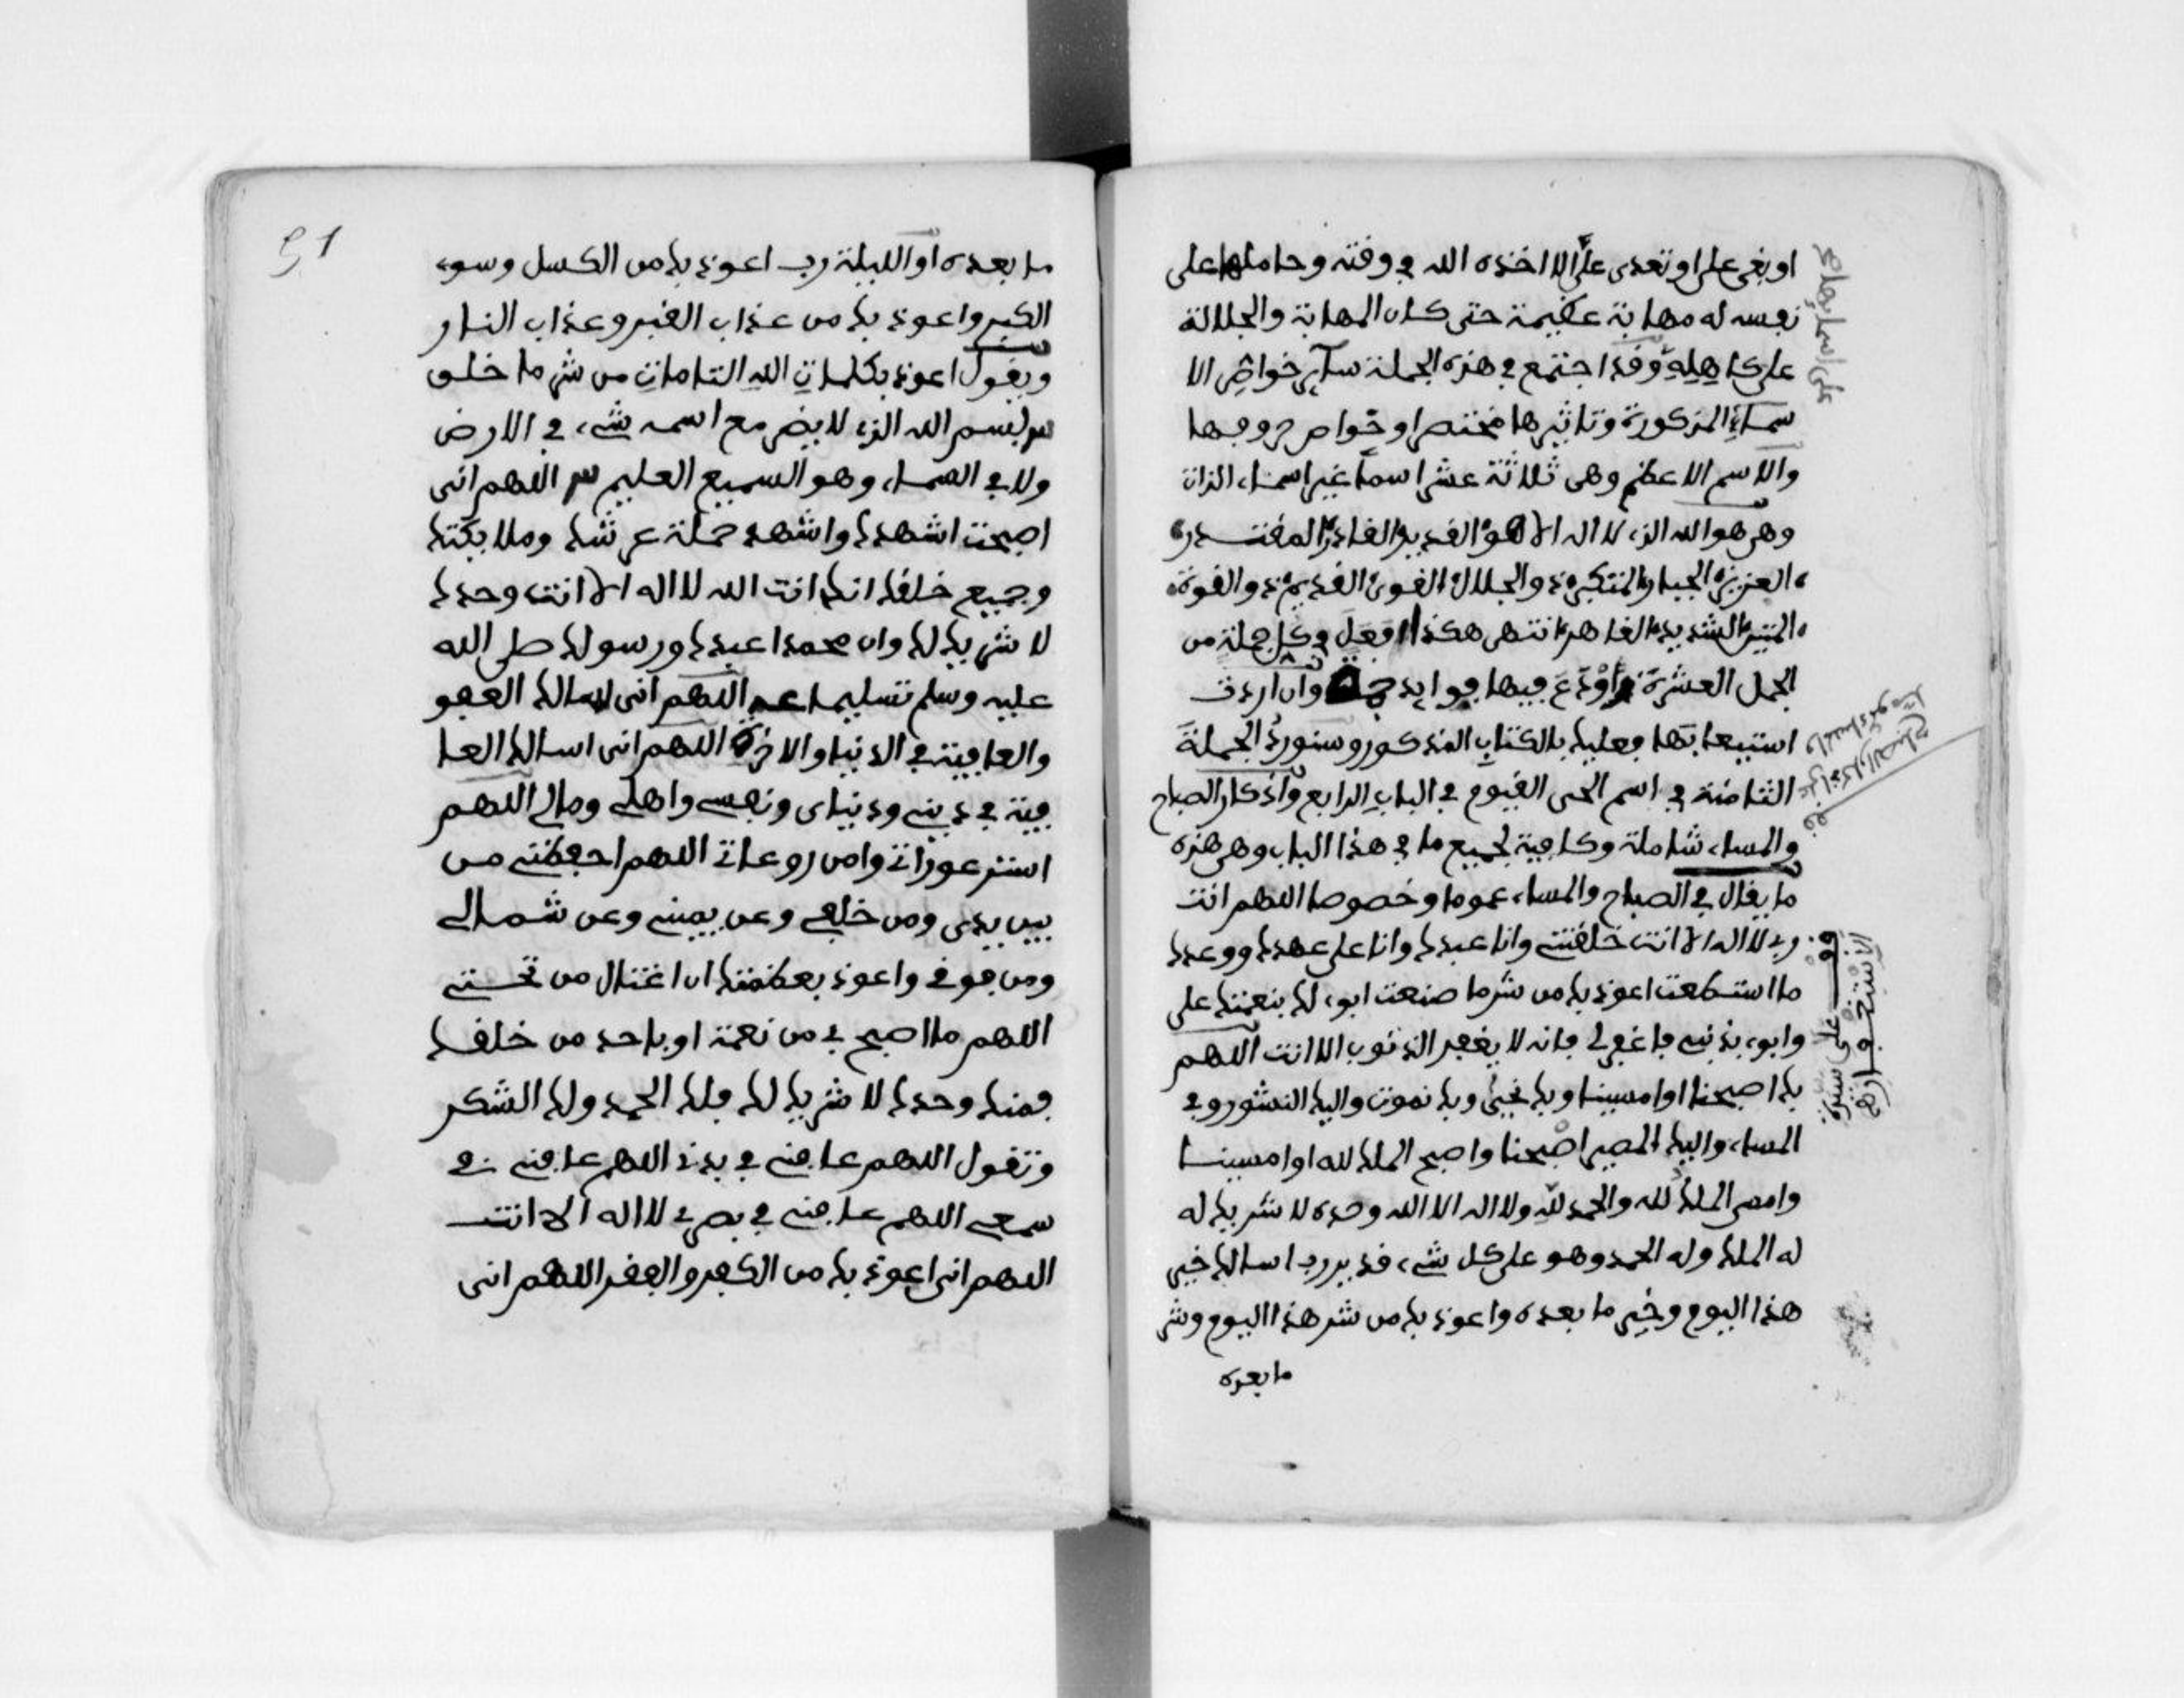 او بغى على او تعدى على الا اخذه الله في وقته وحاملها على
نفسه له مهابة عظيمة حتى كان المهابة والجلالة
على كاهله وقد اجتمع في هذه الجملة ساير خواص الا
سماء المذكورة وتاثيرها مختصرا وخواص حروفها
والاسم الاعظم وهى ثلاثة عشر اسما غير اسماء الذات
وهى هو الله الذى لا اله الا هو القدير القادر المقتدر
العزيز الجبار المتكبر ذو الجلال القوى القديم ذو القوة
المتين الشديد القاهر انتهى هكذا افعل في كل جملة من
الجمل العشرة اودع فيها فوايد وان اردت
استيعابها فعليك بالكتاب المذكور وسنورد الجملة
الثامنة في اسم الحى القيوم في الباب الرابع واذكار الصباح
والمساء شاملة وكافية لجميع ما في هذا الباب وهى هذه
ما يقال في الصباح والمساء عموما وخصوصا اللهم انت
ربى لا اله الا انت خلقتنى وانا عبدك وانا على عهدك ووعدك
ما استطعت اعوذ بك من شر ما صنعت ابوء لك بنعمتك على
وابوء بذنبى فاغفر لى فانه لا يغفر الذنوب الا انت اللهم
بك اصبحنا او امسينا وبك نحيى وبك نموت واليك النشور وفي
المساء واليك المصير اصبحنا واصبح الملك لله او امسينا
وامسى الملك لله والحمد لله ولا اله الا الله وحده لا شريك له
له الملك وله الحمد وهو على كل شىء قدير رب اسالك خير
هذا اليوم وخير ما بعده واعوذ بك من شر هذا اليوم وشر
ما بعده
الاستغفار
51
ما بعده او الليلة رب اعوذ بك من الكسل وسوء
الكبر واعوذ بك من عذاب القبر وعذاب النار
ويقول اعوذ بكلمات الله التامات من شر ما خلق
بسم الله الذى لا يضر مع اسمه شىء في الارض
ولا في السماء وهو السميع العليم اللهم انى
اصبحت اشهدك واشهد حملة عرشك وملايكتك
وجميع خلقك انك انت الله لا اله الا انت وحدك
لا شريك لك وان محمدا عبدك ورسولك صلى الله
عليه وسلم تسليما اللهم انى اسالك العفو
والعافية في الدنيا والاخرة اللهم انى اسالك العا
فية في دينى ودنياى ونفسى واهلى ومالى اللهم
استر عوراتى وامن روعاتى اللهم احفظنى من
بين يدى ومن خلفى وعن يمينى وعن شمالى
ومن فوقى واعوذ بعظمتك ان اغتال من تحتى
اللهم ما اصبح بى من نعمة او باحد من خلقك
فمنك وحدك لا شريك لك فلك الحمد ولك الشكر
وتقول اللهم عافنى في بدنى اللهم عافنى في
سمعى اللهم عافنى في بصرى لا اله الا انت
اللهم انى اعوذ بك من الكفر والفقر اللهم انى